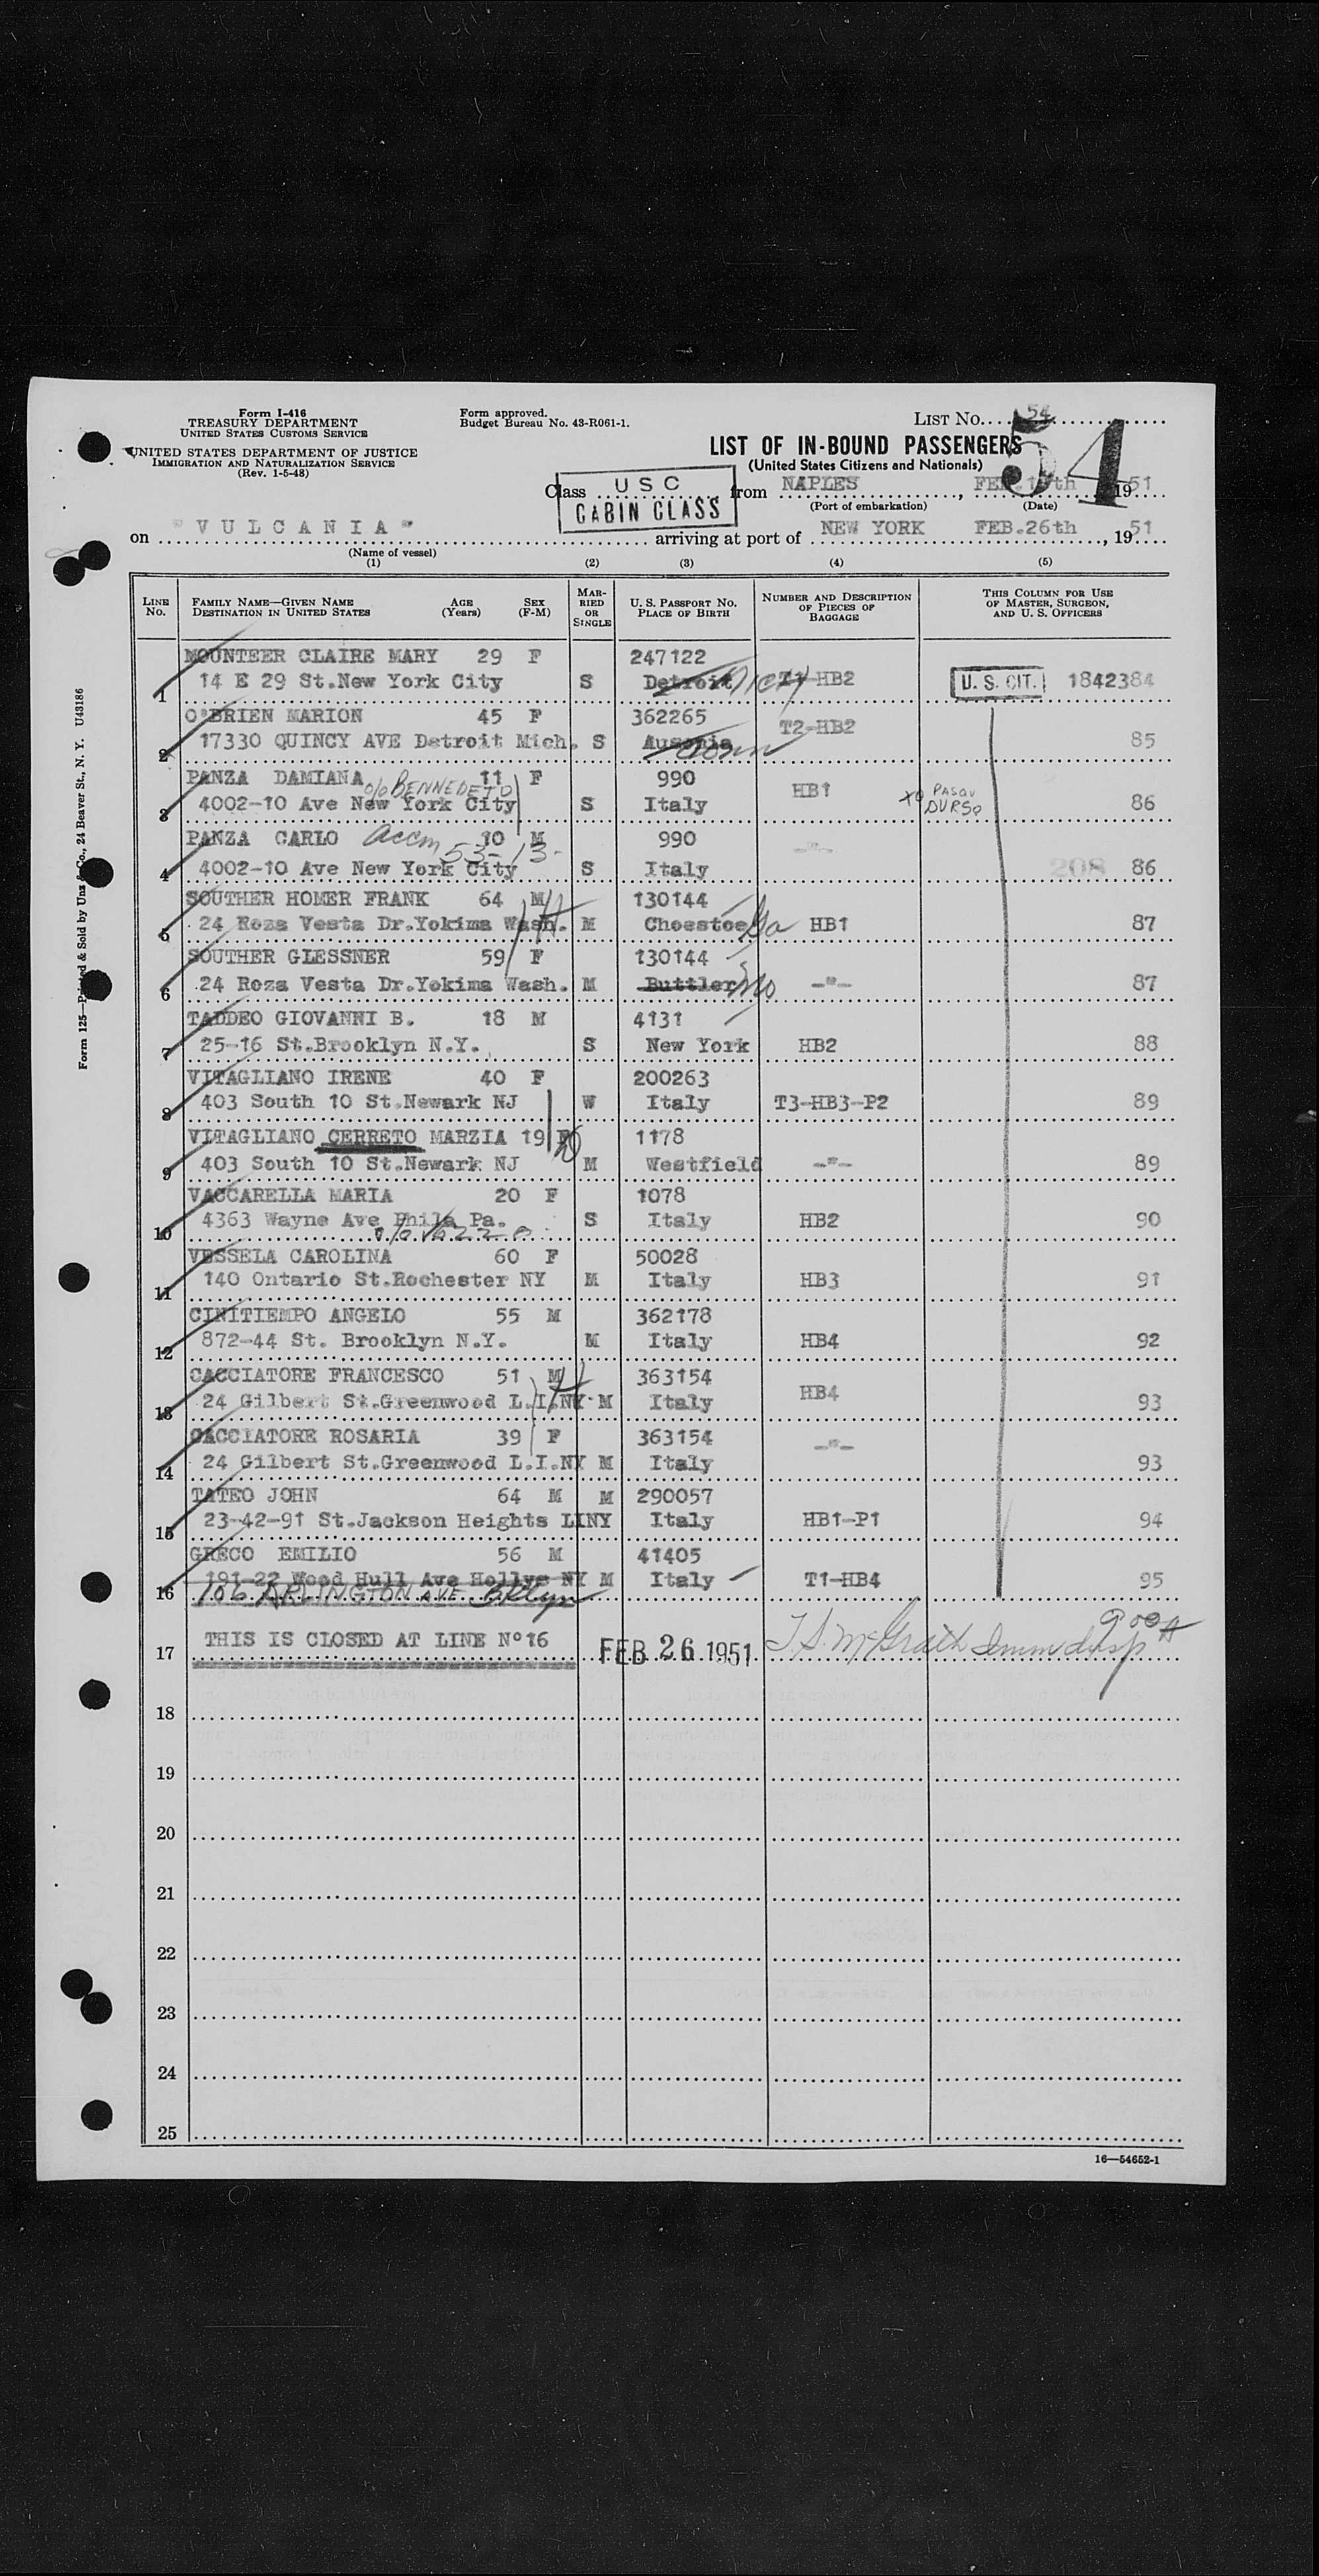 Form I-416
TREASURY DEPARTMENT
UNITED STATES CUSTOMS SERVICE
UNITED STATES DEPARTMENT OF JUSTICE
IMMIGRATION AND NATURALIZATION SERVICE
(Rev. 1-5-48)
Form approved.
Budget Bureau No. 43-R061-1.
LIST No. 54
54
LIST OF IN-BOUND PASSENGERS
(United States Citizens and Nationals)
Class USC CABIN CLASS from NAPLES, FEB. 1951
(Port of embarkation) (Date)
on "VULCANIA" arriving at port of NEW YORK FEB.26th, 1951
(Name of vessel)
(1) (2) (3) (4) (5)
LINE No. FAMILY NAME—GIVEN NAME DESTINATION IN UNITED STATES AGE (Years) SEX (F-M) MARRIED OR SINGLE U. S. PASSPORT No. PLACE OF BIRTH NUMBER AND DESCRIPTION OF PIECES OF BAGGAGE THIS COLUMN FOR USE OF MASTER, SURGEON, AND U. S. OFFICERS
MOUNTEER CLAIRE MARY 29 F 247122
1 14 E 29 St.New York City S Detroit Mich T1-HB2 U. S. CIT. 1842384
O'BRIEN MARION 45 F 362265 T2-HB2
2 17330 QUINCY AVE Detroit Mich. S Ausonia Conn 85
PANZA DAMIANA 11 F 990 HB1
c/o BENNEDETO
3 4002-10 Ave New York City S Italy XO PASQU DURSO 86
PANZA CARLO accm 10 M 990 -"-
53-13-
4 4002-10 Ave New York City S Italy 208 86
SOUTHER HOMER FRANK 64 M 130144
5 24 Roza Vesta Dr.Yokima Wash. M Choestoe Ga HB1 87
SOUTHER GLESSNER 59 F 130144
6 24 Roza Vesta Dr.Yokima Wash. M Buttler Mo -"- 87
TADDEO GIOVANNI B. 18 M 4131
7 25-16 St.Brooklyn N.Y. S New York HB2 88
VITAGLIANO IRENE 40 F 200263
8 403 South 10 St.Newark NJ W Italy T3-HB3-P2 89
VITAGLIANO CERRETO MARZIA 19 F 1178
9 403 South 10 St.Newark NJ M Westfield -"- 89
VACCARELLA MARIA 20 F 1078
10 4363 Wayne Ave Phila Pa. S Italy HB2 90
VESSELA CAROLINA 60 F 50028
11 140 Ontario St.Rochester NY M Italy HB3 91
CINITIEMPO ANGELO 55 M 362178
12 872-44 St. Brooklyn N.Y. M Italy HB4 92
CACCIATORE FRANCESCO 51 M 363154 HB4
13 24 Gilbert St.Greenwood L.I.NY M Italy 93
CACCIATORE ROSARIA 39 F 363154 -"-
14 24 Gilbert St.Greenwood L.I.NY M Italy 93
TATEO JOHN 64 M M 290057
15 23-42-91 St.Jackson Heights LINY Italy HB1-P1 94
GRECO EMILIO 56 M 41405
191-22 Wood Hull Ave Hollys NY M Italy T1-HB4 95
16 106 ARLINGTON AVE. BKlyn
17 THIS IS CLOSED AT LINE N°16 FEB 26 1951 T.S. McGrath Imm Insp
18
19
20
21
22
23
24
25
16—54652-1
Form 125—Printed & Sold by Unz & Co., 24 Beaver St., N. Y. U43186